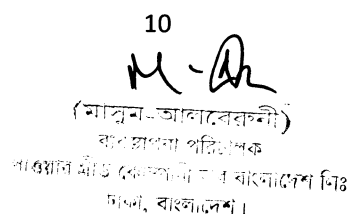 10
(মাসুম-আলবেরুনী)
ব্যবস্থাপনা পরিচালক
পাওয়ার গ্রীড কোম্পানী অব বাংলাদেশ লিঃ
ঢাকা, বাংলাদেশ।